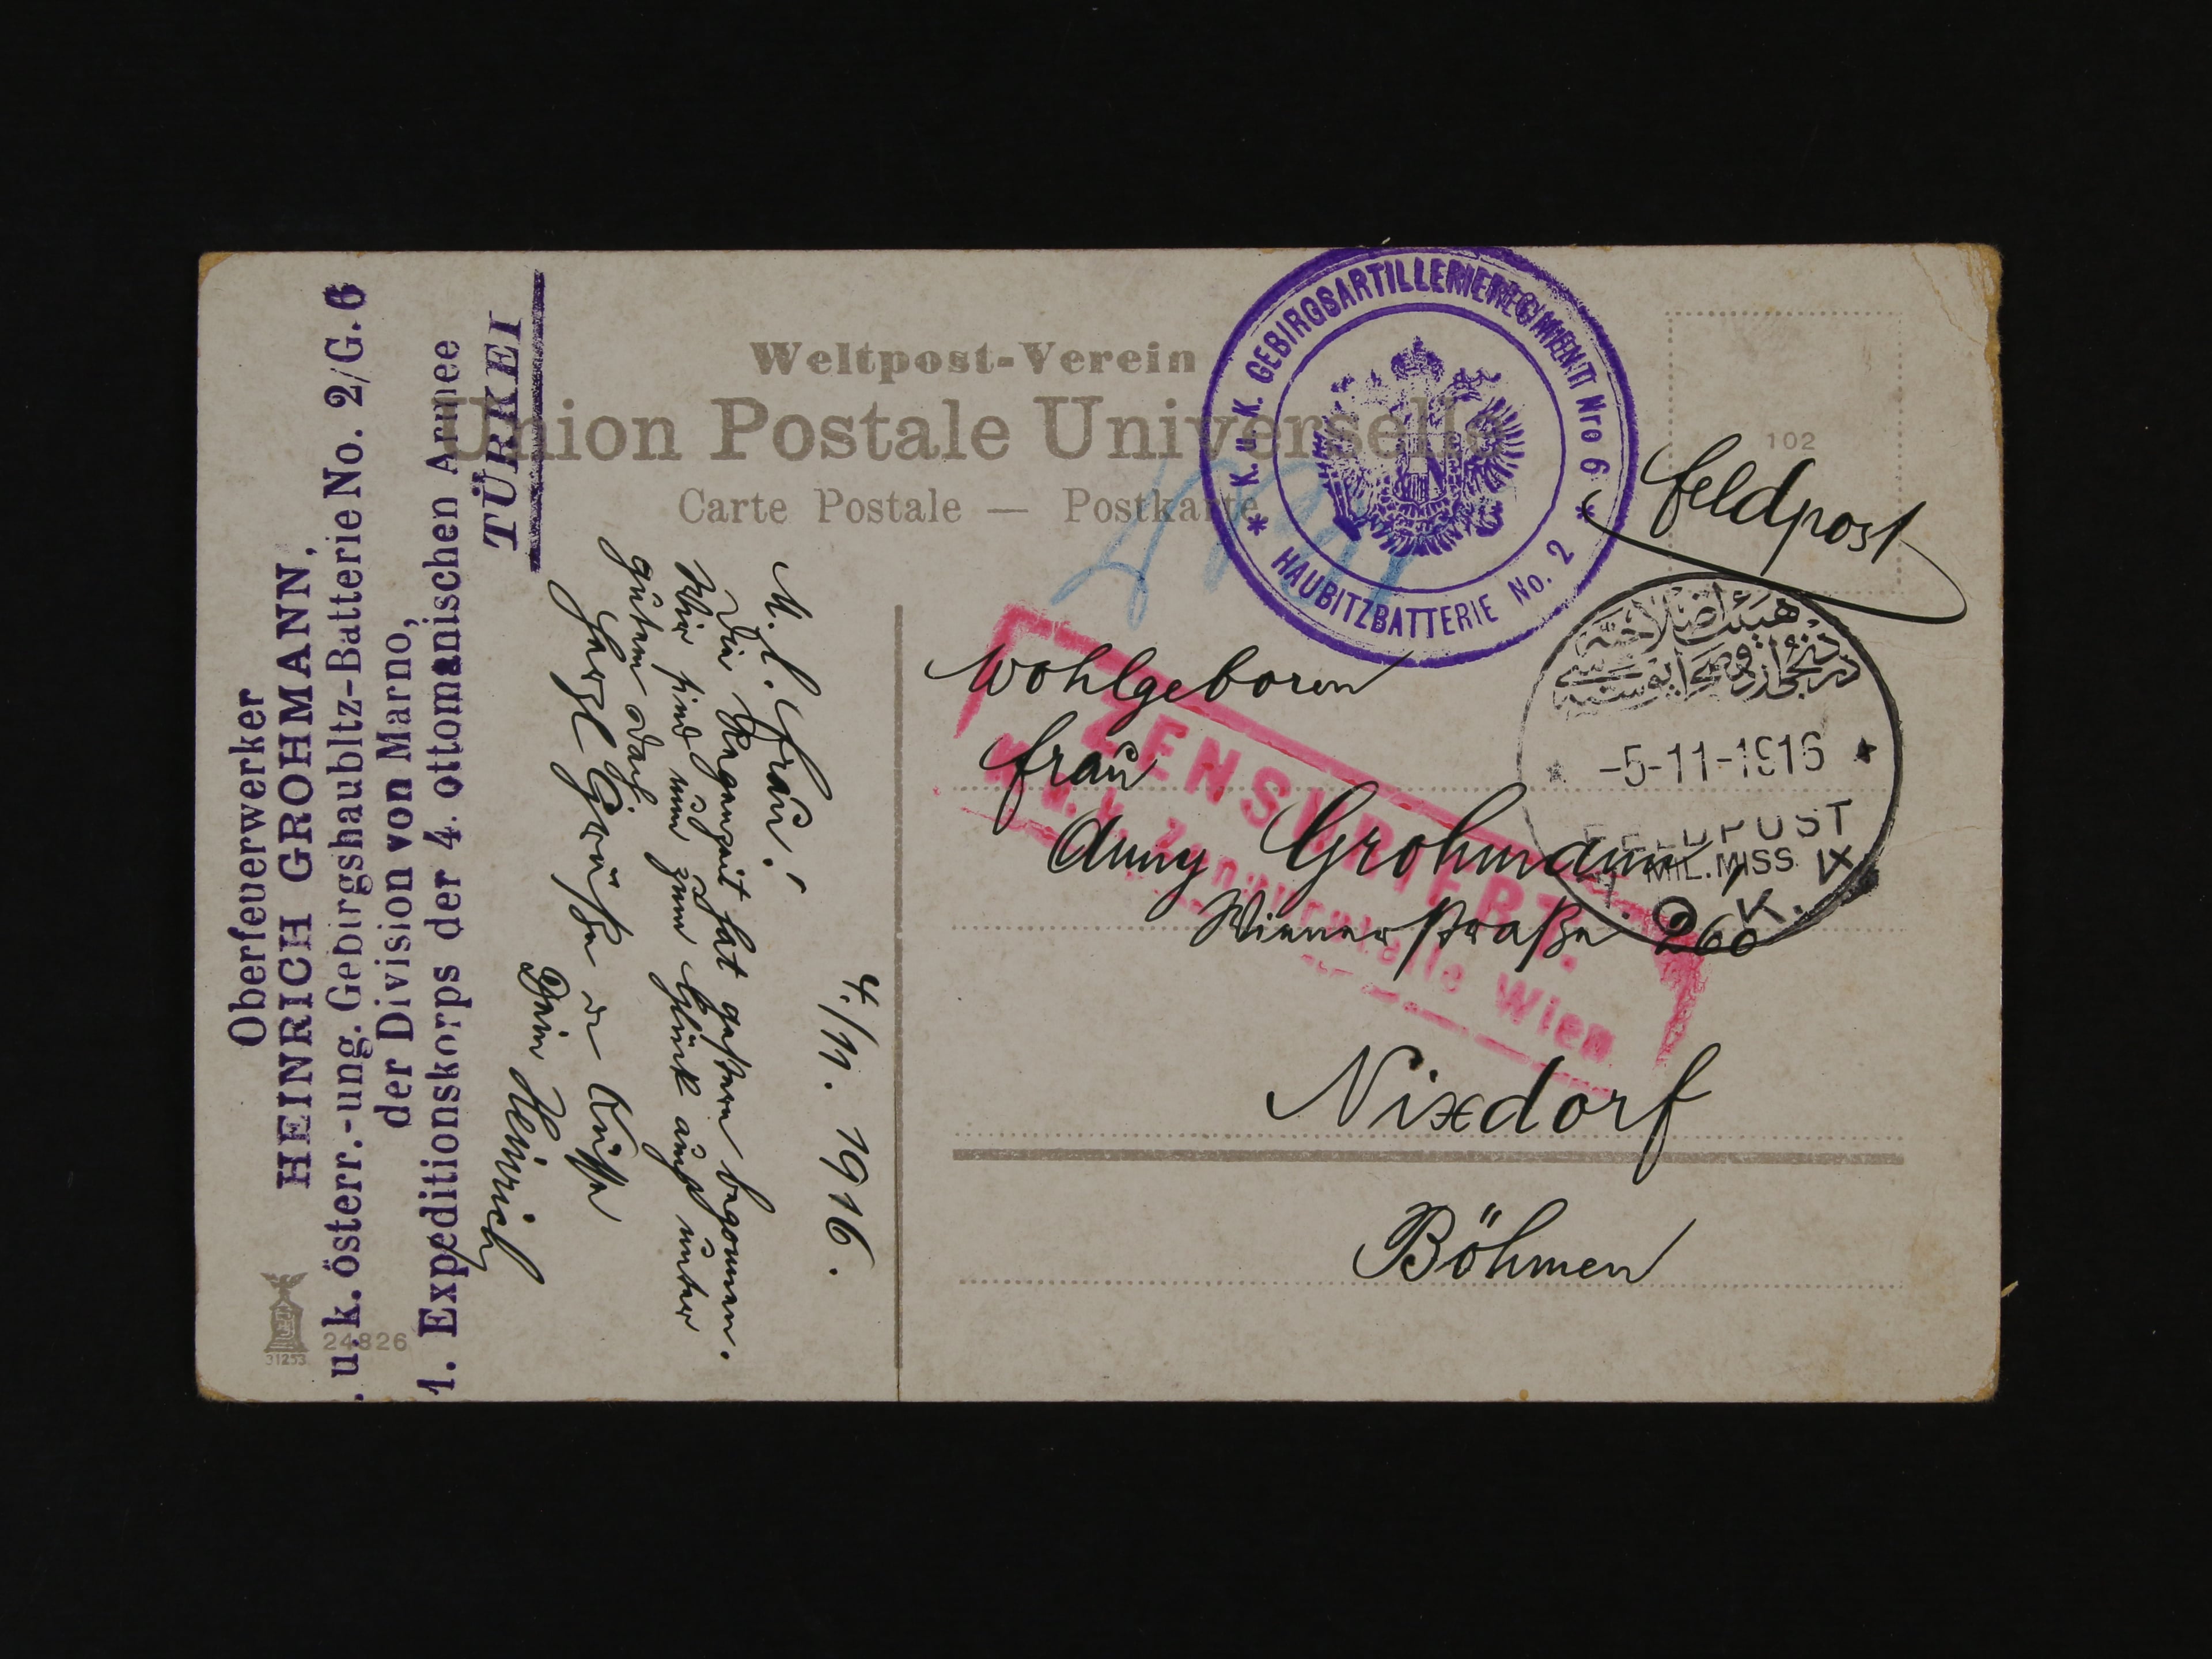 Oberfeuerwerker
HEINRICH GROHMANN,
. u. k. österr.-ung. Gebirgshaubitz-Batterie No. 2/G. 6
der Division von Marno,
1. Expeditionskorps der 4. ottomanischen Armee
TÜRKEI
Weltpost-Verein
Union Postale Universelle
Carte Postale — Postkarte
K. u. K. GEBIRGSARTILLERIEREGIMENT Nro 6
HAUBITZBATTERIE No. 2
102
Feldpost
-5-11-1916
FELDPOST
MIL. MISS
A. O. K. IX
ZENSURIERT.
K. u. k. Zensurstelle Wien
4./11. 1916.
M. l. Frau!
Die Regenzeit hat gestern begonnen.
Wir sind nun zum Glück auch unter
gutem Dach.
Herzl Grüße u Küsse
Dein Heinrich
Wohlgeboren
Frau
Anny Grohmann,
Wienerstraße 260
Nixdorf
Böhmen
31253
24826